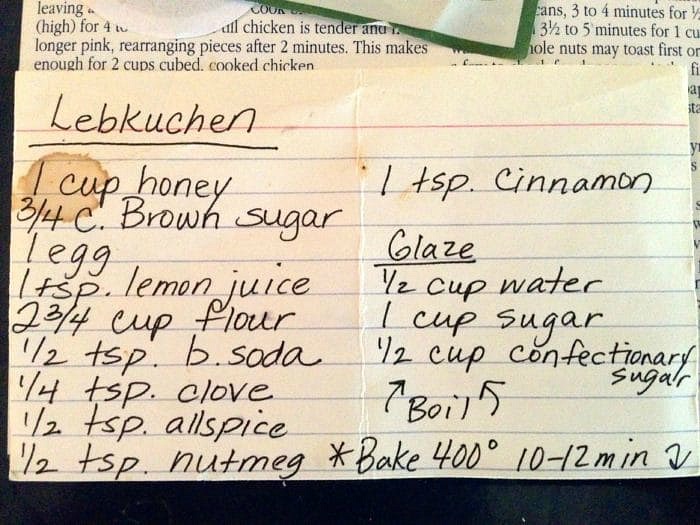 leaving
(high) for 4
chicken is tender and
longer pink, rearranging pieces after 2 minutes. This makes
enough for 2 cups cubed, cooked chicken
cans, 3 to 4 minutes for
3½ to 5 minutes for 1 cu
nuts may toast first or
Lebkuchen
1 cup honey
3/4 C. Brown sugar
1 egg
1 tsp. lemon juice
2 3/4 cup flour
1/2 tsp. b.soda
1/4 tsp. clove
1/2 tsp. allspice
1/2 tsp. nutmeg
1 tsp. Cinnamon
Glaze
1/2 cup water
1 cup sugar
1/2 cup confectionary
sugar
↗ Boil ↖
*Bake 400° 10-12 min ↓